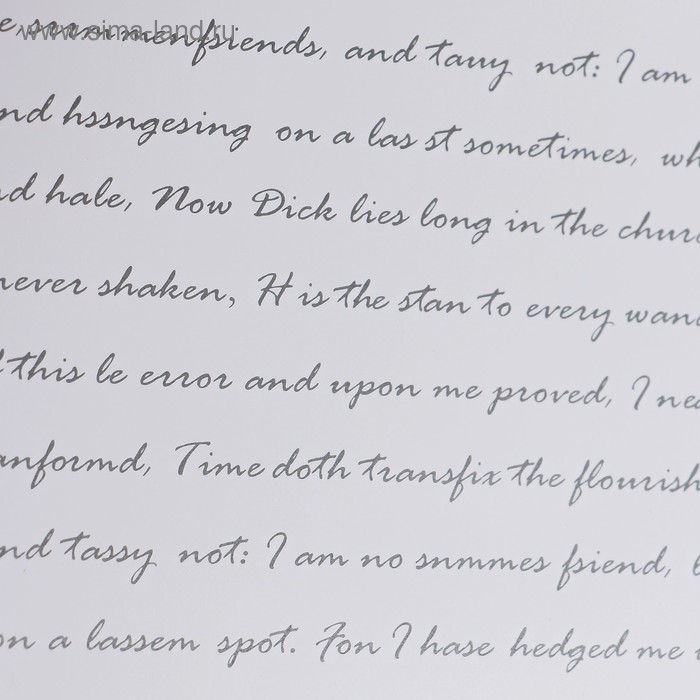 www.sima-land.ru
e summenfsiends, and tauy not: I am
nd hssngesing on a las st sometimes, wh
nd hale, Now Dick lies long in the churc
never shaken, H is the stan to every wand
this le error and upon me proved, I nea
anformd, Time doth transfix the flourish
nd tassy not: I am no snmmes fsiend,
on a lassem spot. Fon I hase hedged me